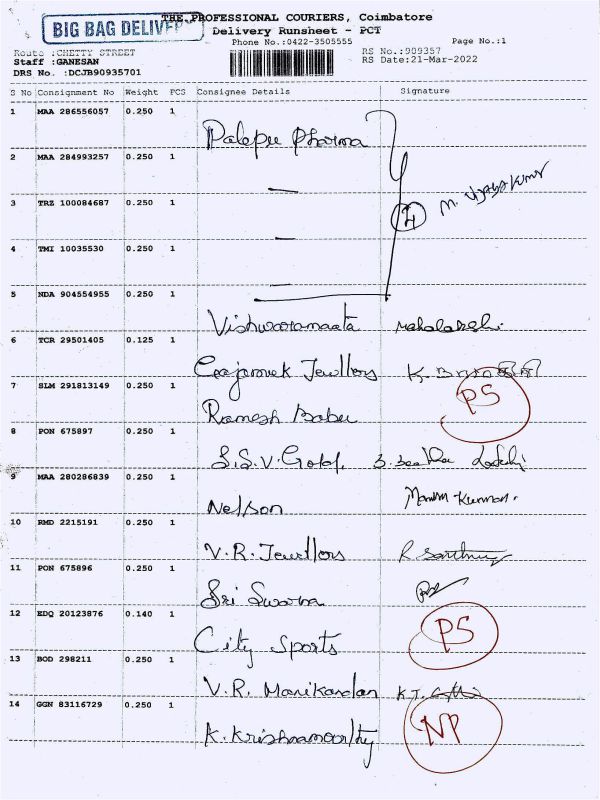 BIG BAG DELIVERY
THE PROFESSIONAL COURIERS, Coimbatore
Delivery Runsheet - PCT
Phone No.:0422-3505555 Page No.:1
Route :CHETTY STREET RS No.:909357
Staff :GANESAN RS Date:21-Mar-2022
DRS No. :DCJB90935701
S No Consignment No Weight PCS Consignee Details Signature
1 MAA 286556057 0.250 1
Palepu Pharma
2 MAA 284993257 0.250 1
3 TRZ 100084687 0.250 1
4 M. Vijayakumar
4 TMI 10035530 0.250 1
5 NDA 904554955 0.250 1
Vishwaramaata Mahalakshi.
6 TCR 29501405 0.125 1
Jewllors K.
7 SLM 291813149 0.250 1 PS
Ramesh Babu
8 PON 675897 0.250 1
S.S.V. Gold.
9 MAA 280286839 0.250 1
Nelson Kumar.
10 RMD 2215191 0.250 1
V.R. Jewllors R
11 PON 675896 0.250 1
Sri Swarna
12 EDQ 20123876 0.140 1
City Sports PS
13 BOD 298211 0.250 1
V.R. Manikandan K.T.
14 GGN 83116729 0.250 1
K. Krishnamoorthy NP